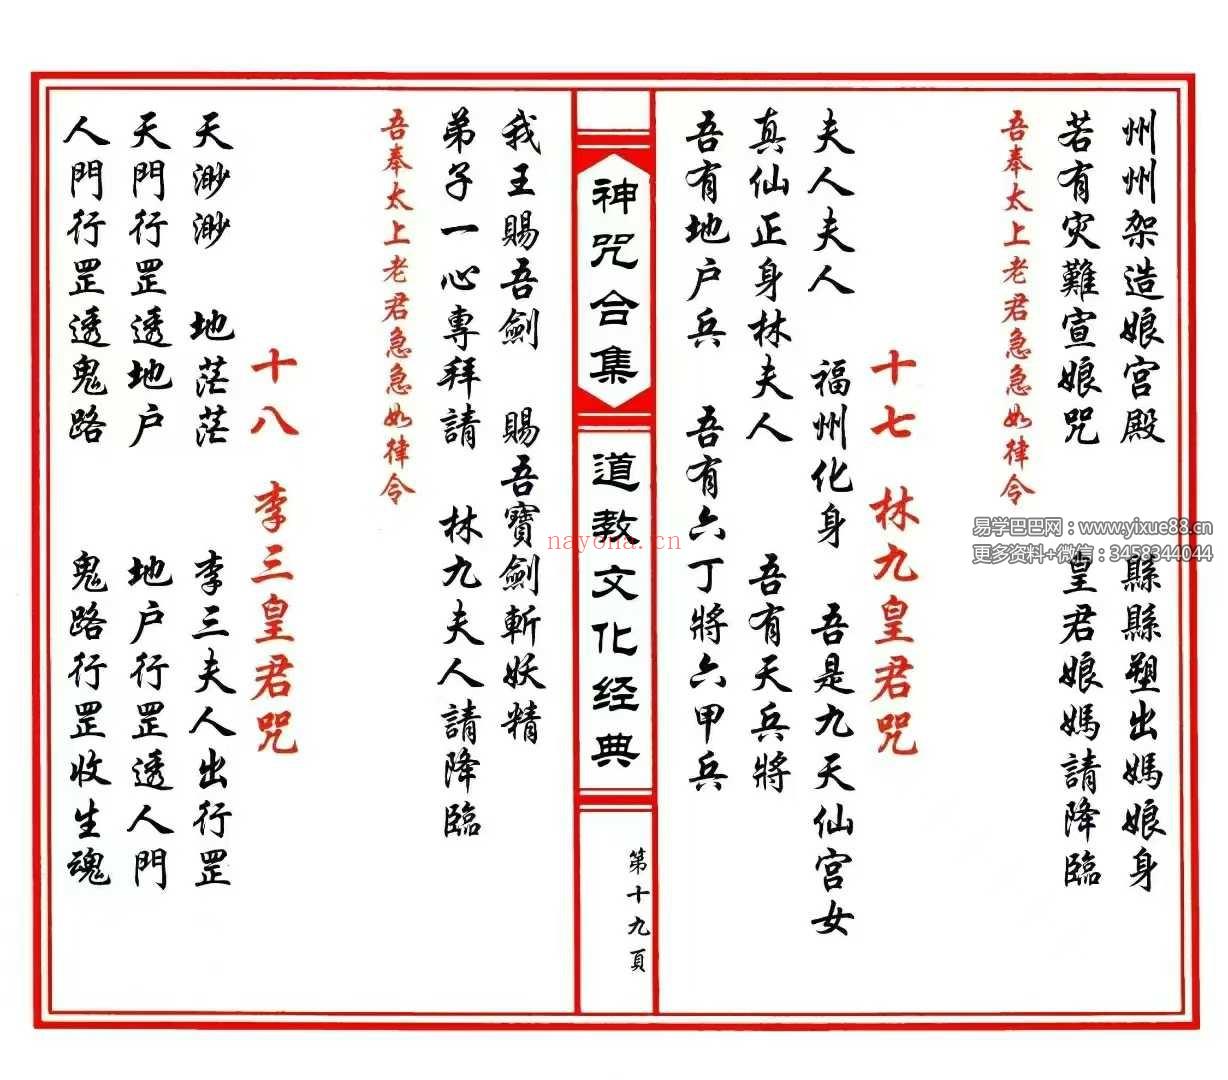 州州架造娘宫殿　縣縣塑出媽娘身
若有灾難宣娘咒　皇君娘媽請降臨
吾奉太上老君急急如律令
十七　林九皇君咒
夫人夫人　福州化身　吾是九天仙宫女
真仙正身林夫人　吾有天兵將
吾有地户兵　吾有六丁將六甲兵
神咒合集
道教文化经典
第十九頁
我王賜吾劍　賜吾寶劍斬妖精
弟子一心專拜請　林九夫人請降臨
吾奉太上老君急急如律令
十八　李三皇君咒
天渺渺　地茫茫　李三夫人出行罡
天門行罡透地户　地户行罡透人門
人門行罡透鬼路　鬼路行罡收生魂
易学巴巴网：www.yixue88.cn
更多资料+微信：3458344044
nayona.cn